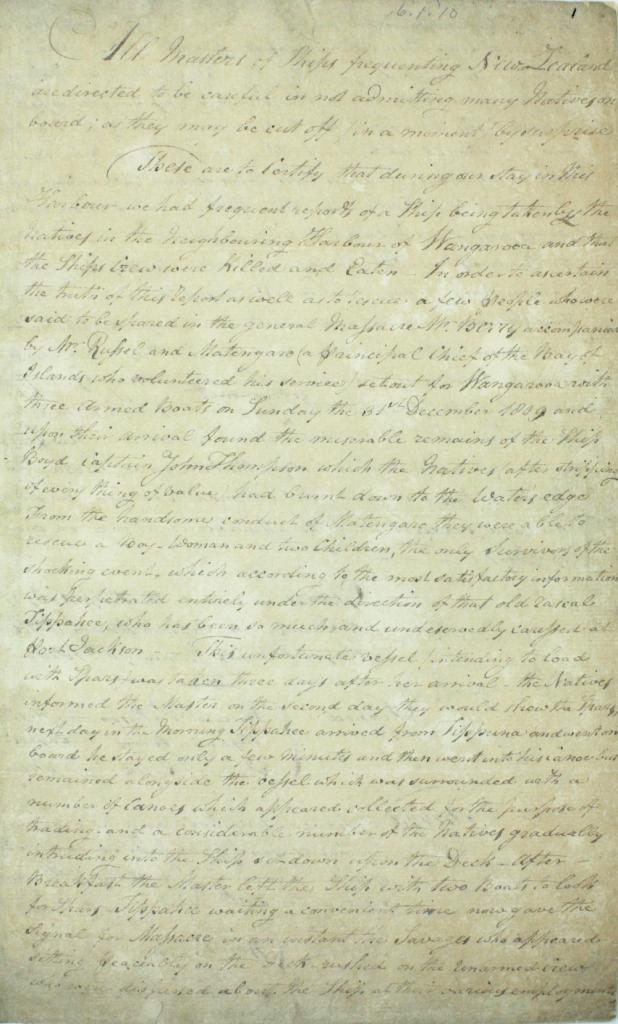 6.1.10
1
All Masters of Ships frequenting New Zealand
are directed to be careful in not admitting many Natives on
board; as they may be cut off (in a moment) by surprise
These are to Certify that during our Stay in this
Harbour we had frequent reports of a Ship being taken by the
Natives in the Neighbouring Harbour of Wangarooa and that
the Ships Crew were Killed and Eaten - In order to ascertain
the truth of this Report as well as to rescue a few people who were
said to be spared in the general Massacre Mr. Berry accompanied
by Mr. Russel and Matengaro (a Principal Chief of the Bay of
Islands who volunteered his service) set out for Wangarooa with
three Armed Boats on Sunday the 31st December 1809 and
upon their arrival found the miserable remains of the Ship
Boyd Captain John Thompson which the Natives (after stripping
of every thing of value) had burnt down to the Waters edge
From the handsome conduct of Matengaro they were able to
rescue a Boy - Woman and two Children, the only Survivors of the
Shocking event, which according to the most satisfactory information
was perpetrated entirely under the direction of that old rascal
Tippahee, who has been so much and undeservedly caressed at
Port Jackson - This unfortunate vessel (intending to load
with Spars) was taken three days after her arrival - the Natives
informed the Master on the second day they would show the Spars
next day in the Morning Tippahee arrived from Tippuna and went on
board he stayed only a few minutes and then went into his canoe but
remained alongside the vessel which was surrounded with a
number of Canoes which appeared collected for the purpose of
trading, and a considerable number of the Natives gradually
intruding into the Ship sat down upon the Deck - After -
Breakfast the Master left the Ship with two Boats to look
for Spars Tippahee waiting a convenient time now gave the
Signal for Massacre in an instant the Savages who appeared
sitting peaceably on the Deck rushed on the Unarmed Crew
who were dispersed about the Ship at their various employments